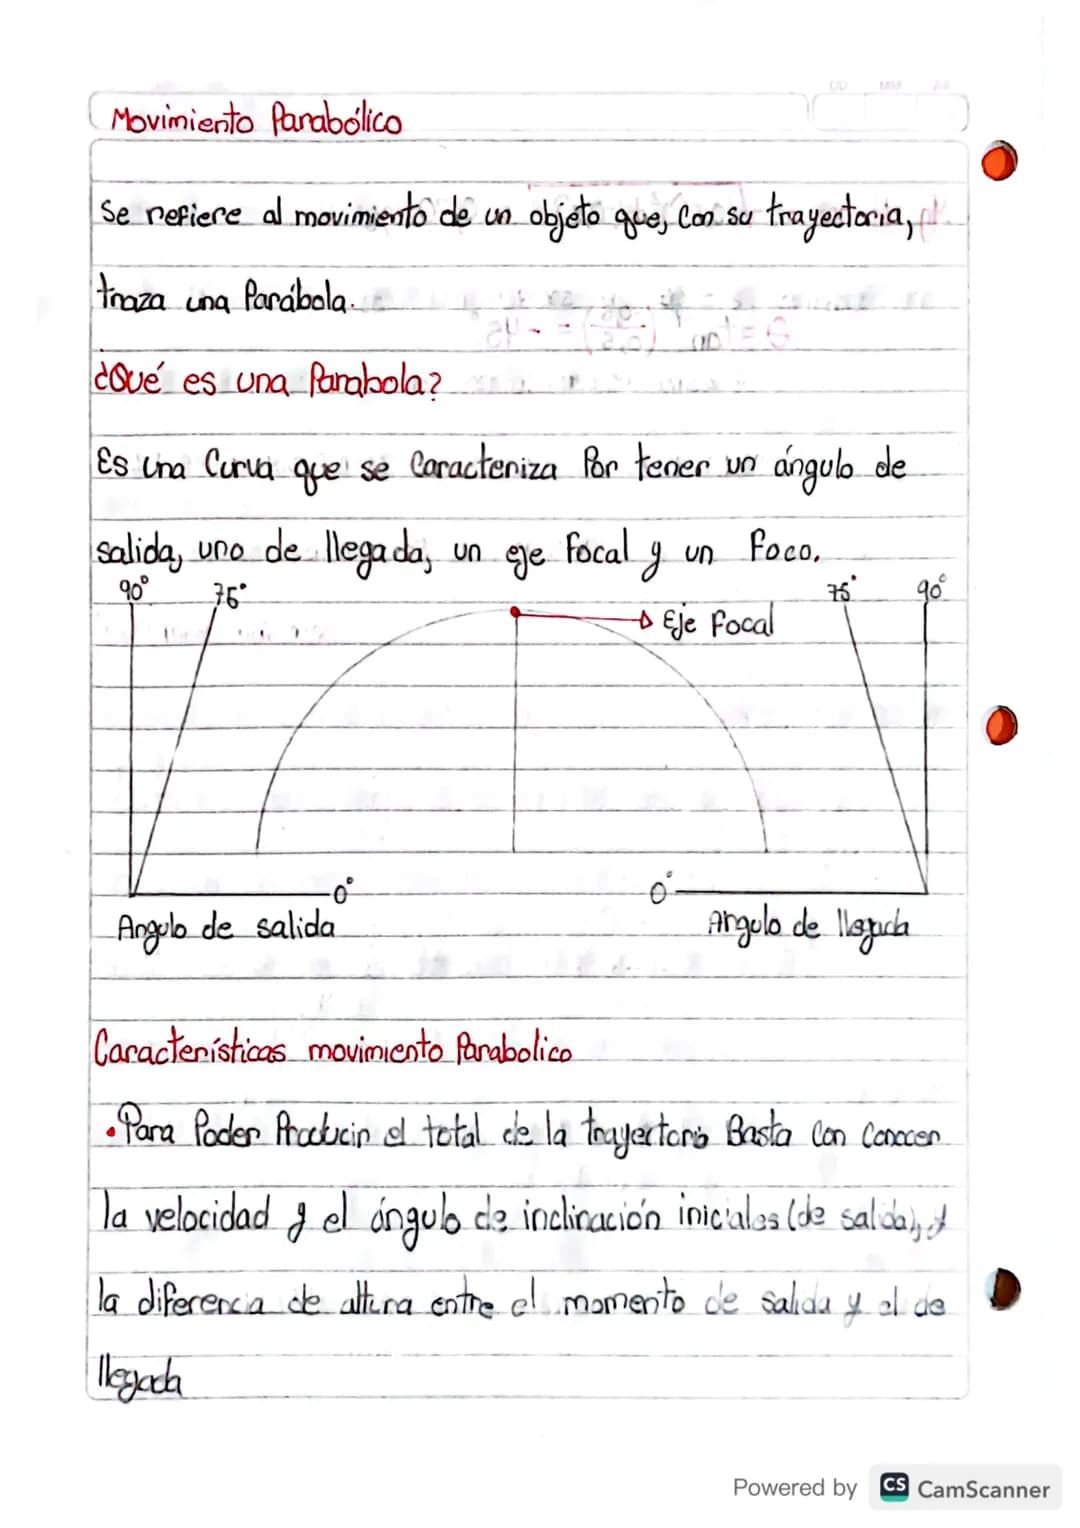 Movimiento Parabólico
Se refiere al movimiento de un objeto que, con su trayectoria,
traza una Parábola.
¿Qué es una Parabola?
Es una Curva que se Caracteriza Por tener un ángulo de
salida, uno de llegada, un eje focal y un Foco.
90° 76° 76° 90°
Eje focal
0° 0°
Angulo de salida Angulo de llegada
Características movimiento Parabolico
• Para Poder Producir el total de la trayectoria Basta Con Conocer
la velocidad y el ángulo de inclinación iniciales (de salida), y
la diferencia de altura entre el momento de salida y el de
llegada
Powered by CS CamScanner